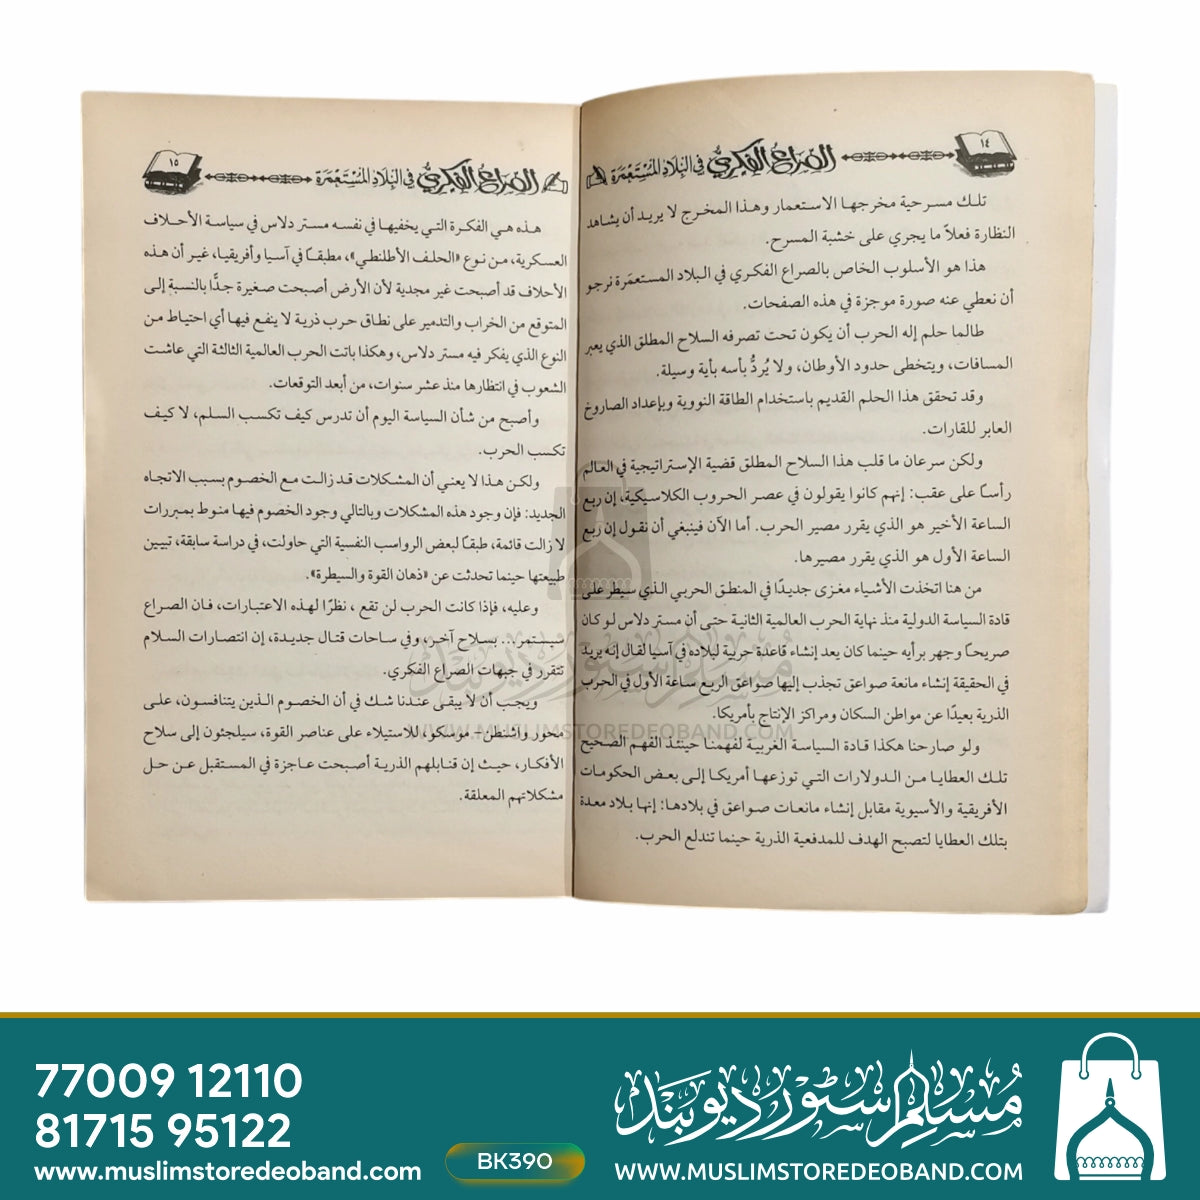 ١٤
الصراع الفكري في البلاد المستعمرة
تلك مسرحية مخرجها الاستعمار وهذا المخرج لا يريد أن يشاهد
النظارة فعلاً ما يجري على خشبة المسرح.
هذا هو الأسلوب الخاص بالصراع الفكري في البلاد المستعمَرة نرجو
أن نعطي عنه صورة موجزة في هذه الصفحات.
طالما حلم إله الحرب أن يكون تحت تصرفه السلاح المطلق الذي يعبر
المسافات، ويتخطى حدود الأوطان، ولا يُردُّ بأسه بأية وسيلة.
وقد تحقق هذا الحلم القديم باستخدام الطاقة النووية وبإعداد الصاروخ
العابر للقارات.
ولكن سرعان ما قلب هذا السلاح المطلق قضية الإستراتيجية في العالم
رأسًا على عقب: إنهم كانوا يقولون في عصر الحروب الكلاسيكية، إن ربع
الساعة الأخير هو الذي يقرر مصير الحرب. أما الآن فينبغي أن نقول إن ربع
الساعة الأول هو الذي يقرر مصيرها.
من هنا اتخذت الأشياء مغزى جديدًا في المنطق الحربي الذي سيطر على
قادة السياسة الدولية منذ نهاية الحرب العالمية الثانية حتى أن مستر دلاس لو كان
صريحًا وجهر برأيه حينما كان يعد إنشاء قاعدة حربية لبلاده في آسيا لقال إنه يريد
في الحقيقة إنشاء مانعة صواعق تجذب إليها صواعق الربع ساعة الأول في الحرب
الذرية بعيدًا عن مواطن السكان ومراكز الإنتاج بأمريكا.
ولو صارحنا هكذا قادة السياسة الغربية لفهمنا حينئذ الفهم الصحيح
تلك العطايا من الدولارات التي توزعها أمريكا إلى بعض الحكومات
الأفريقية والأسيوية مقابل إنشاء مانعات صواعق في بلادها: إنها بلاد معدة
بتلك العطايا لتصبح الهدف للمدفعية الذرية حينما تندلع الحرب.
١٥
الصراع الفكري في البلاد المستعمرة
هذه هي الفكرة التي يخفيها في نفسه مستر دلاس في سياسة الأحلاف
العسكرية، من نوع «الحلف الأطلنطي»، مطبقًا في آسيا وأفريقيا، غير أن هذه
الأحلاف قد أصبحت غير مجدية لأن الأرض أصبحت صغيرة جدًّا بالنسبة إلى
المتوقع من الخراب والتدمير على نطاق حرب ذرية لا ينفع فيها أي احتياط من
النوع الذي يفكر فيه مستر دلاس، وهكذا باتت الحرب العالمية الثالثة التي عاشت
الشعوب في انتظارها منذ عشر سنوات، من أبعد التوقعات.
وأصبح من شأن السياسة اليوم أن تدرس كيف تكسب السلم، لا كيف
تكسب الحرب.
ولكن هذا لا يعني أن المشكلات قد زالت مع الخصوم بسبب الاتجاه
الجديد: فإن وجود هذه المشكلات وبالتالي وجود الخصوم فيها منوط بمبررات
لا زالت قائمة، طبقًا لبعض الرواسب النفسية التي حاولت، في دراسة سابقة، تبيين
طبيعتها حينما تحدثت عن «ذهان القوة والسيطرة».
وعليه، فإذا كانت الحرب لن تقع ، نظرًا لهذه الاعتبارات، فان الصراع
سيستمر... بسلاح آخر، وفي ساحات قتال جديدة، إن انتصارات السلام
تتقرر في جبهات الصراع الفكري.
ويجب أن لا يبقى عندنا شك في أن الخصوم الذين يتنافسون، على
محور واشنطن- موسكو، للاستيلاء على عناصر القوة، سيلجئون إلى سلاح
الأفكار، حيث إن قنابلهم الذرية أصبحت عاجزة في المستقبل عن حل
مشكلاتهم المعلقة.
مسلم سٹور دیوبند
WWW.MUSLIMSTOREDEOBAND.COM
77009 12110
81715 95122
www.muslimstoredeoband.com
BK390
مسلم سٹور دیوبند
WWW.MUSLIMSTOREDEOBAND.COM